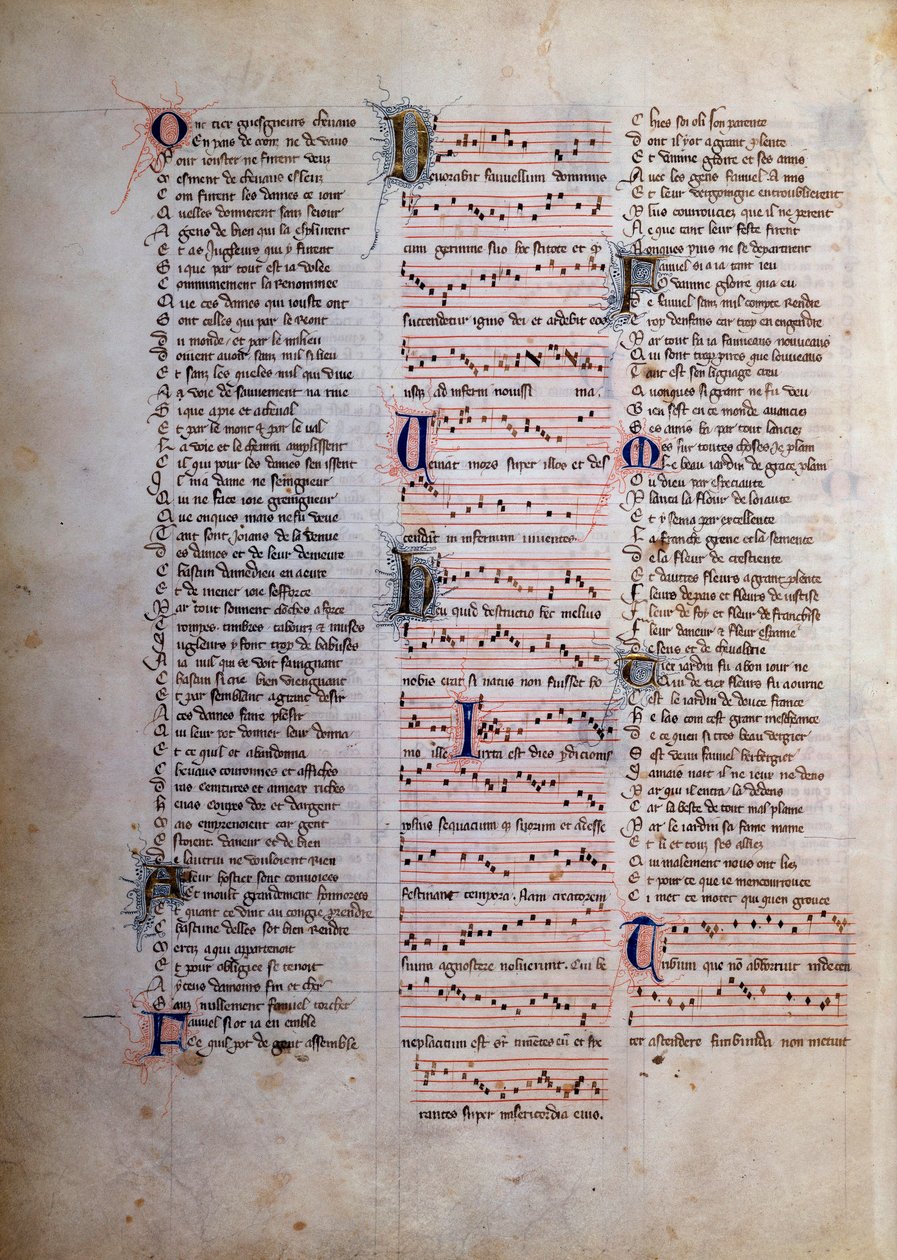 Onc tier guesgneurs cheuaus
En pais de com ne de vaus
Pour iouster ne furent veuz
Com furent les dames ce iour
Quelles donnerent sanz seiour
A gens de bien qui la esploitent
Et as Jugleurs qui y furent
Si que par tout est ia volee
Communement la Renommee
Que ces dames qui iouste ont
Sont celles qui par le Ront
Du monde et par le milieu
Doiuent auoir sanz nul si lieu
Et sanz les queles nul qui viue
A voie de sauuement na riue
Si que a pie et a cheual
Et par le mont & par le ual
La voie et le chemin amplissent
Cil qui pour les dames sen issent
Il ni a dame ne seingneur
Qui ne face ioie greingneur
Que onques mais ne fu veue
Tant sont Joians de la venue
Des dames et de leur demeure
Chascun damnedieu en aeure
Et de mener ioie sefforce
Par tout sonnent cloches a force
Trompes tambres tabourz & muses
Jugleurs y font trop de babuses
Na nul qui se voit fauuignant
Chascun si crie bien viengnant
Et par semblant a grant desir
A ces dames faire plesir
Qui leur pot donner leur donna
Et ce quil ot abandonna
Cheuaus couronnes et affiches
Dras ceintures et anneax riches
Henas coupes dor et dargent
Mais emprenoient car gent
Estoient daneur et de bien
De lautrui ne vouloient Rien
A leur hostier sont conuoiees
Et moult grandement honnorees
Et quant ce vint au congie prendre
Chascune delles sot bien Rendre
Merciz a qui appartenoit
Et pour obligiee se tenoit
A yceus damours fin et cher
Sanz nullement fauuel torcher
Fauuel si ot ia en emble
Ce quil pot de gent assemble
Deuorabit fauuellum dominus
cum germine suo hoc scitote et qͥ
succendetur ignis dei et ardebit eos
usqȝ ad inferni nouissi ma.
Ueniat mors super illos et des
cendāt in infernum uiuentes.
Heu quid destructio hec melius
nobis erat si natus non fuisset ho
mo ille Iuxta est dies pdicionis
ipsius sequacium qȝ suorum et adesse
festinant tempora. Nam creatorem
suum agnoscere noluerunt. Cui be
neplacitum est sr timētes eū et spe
rantes super misericordia eius.
Chies soi oli son parente
Dont il y ot a grant plente
Et vainne gloire et ses amis
Auec les gens fauuel A mis
Et leur vergoingne entroublierent
Plus courouciez que il ne perent
Ne que tant leur feste firent
Nonques puis ne se departirent
Fauuel si a ia tant ieu
O vainne gloire qua eu
De fauuel sanz nul compte Rendre
Trop denfans car trop en engendre
Par tout ha ia fauueaus nouueaus
Qui sont trop pires que louueaus
Tant est son lignage creu
Quonques si grant ne fu veu
Bien sest en ce monde auancies
Ses amis ha par tout lancies
Mes sur toutes choses Je plain
Le beau iardin de grace plain
Ou dieu par especiaute
Planta la flour de loiaute
Et y sema par excellence
La franche grene et la semence
De la fleur de crestiente
Et dautres fleurs a grant plente
Fleurs de pais et fleurs de iustise
Fleur de foy et fleur de franchise
Fleur daneur & fleur espanie
De sens et de cheualerie
Tiex iardin fu a bon iour ne
Qui de tiex fleurs fu aourne
Cest le iardin de douce france
Helas com cest grant mescheance
De ce quen si tres beau vergier
Sest venu fauuel herbergier
Jamais nait il ne ieur ne dens
Par qui il entra la dedens
Car la beste de tout mal plaine
Par le iardin sa fame maine
Et li et touz ses aliez
Qui malement nous ont liez
Et pour ce que ie men courrouce
Ci met ce motet qui quen grouce
Tribum que nō abhorruit indecen
ter ascendere furibunda non metuit